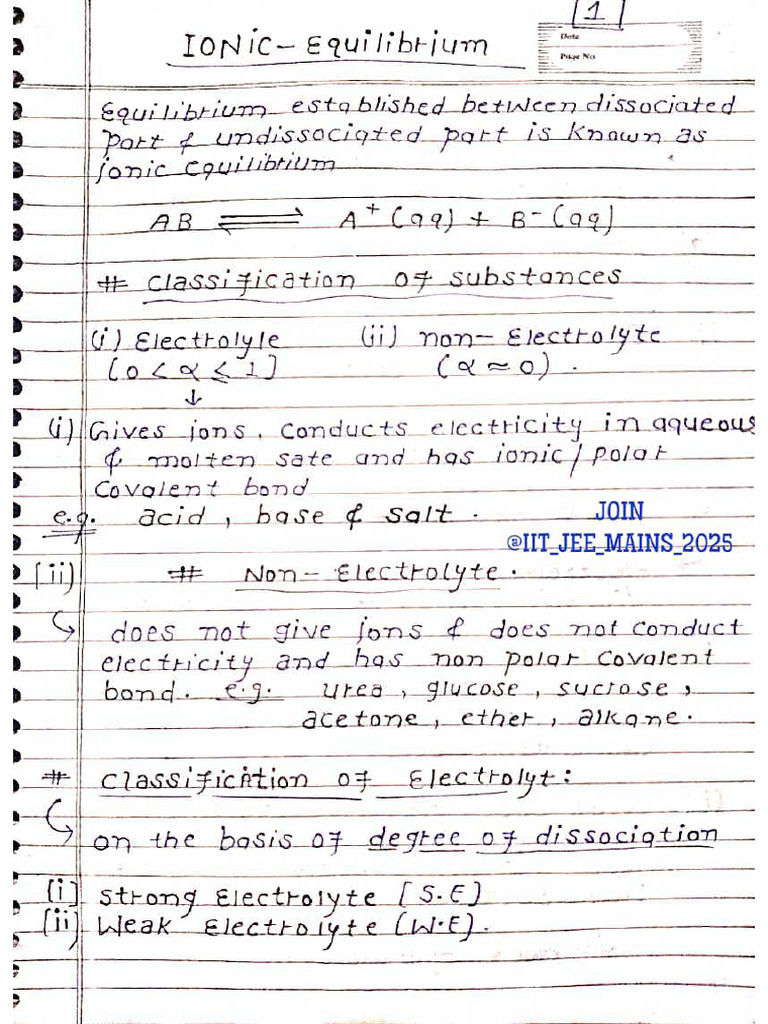 [1]
Date
Page No.
IONic - Equilibrium
Equilibrium established between dissociated
part & undissociated part is known as
ionic equilibrium
AB ⇌ A⁺ (aq) + B⁻ (aq)
# classification of substances
(i) Electrolyle (ii) non-Electrolyte
[0 < α ≤ 1] (α ≈ 0).
↓
(i) Gives ions. conducts electricity in aqueous
& molten sate and has ionic/polar
covalent bond
e.g. acid, base & salt.
JOIN
@IIT_JEE_MAINS_2025
[ii) # Non-Electrolyte.
↳ does not give ions & does not conduct
electricity and has non polar covalent
bond. e.g. urea, glucose, sucrose,
acetone, ether, alkane.
# classification of Electrolyt:
↳ on the basis of degree of dissociation
[i] strong Electrolyte [S.E)
[ii) Weak Electrolyte (W.E).